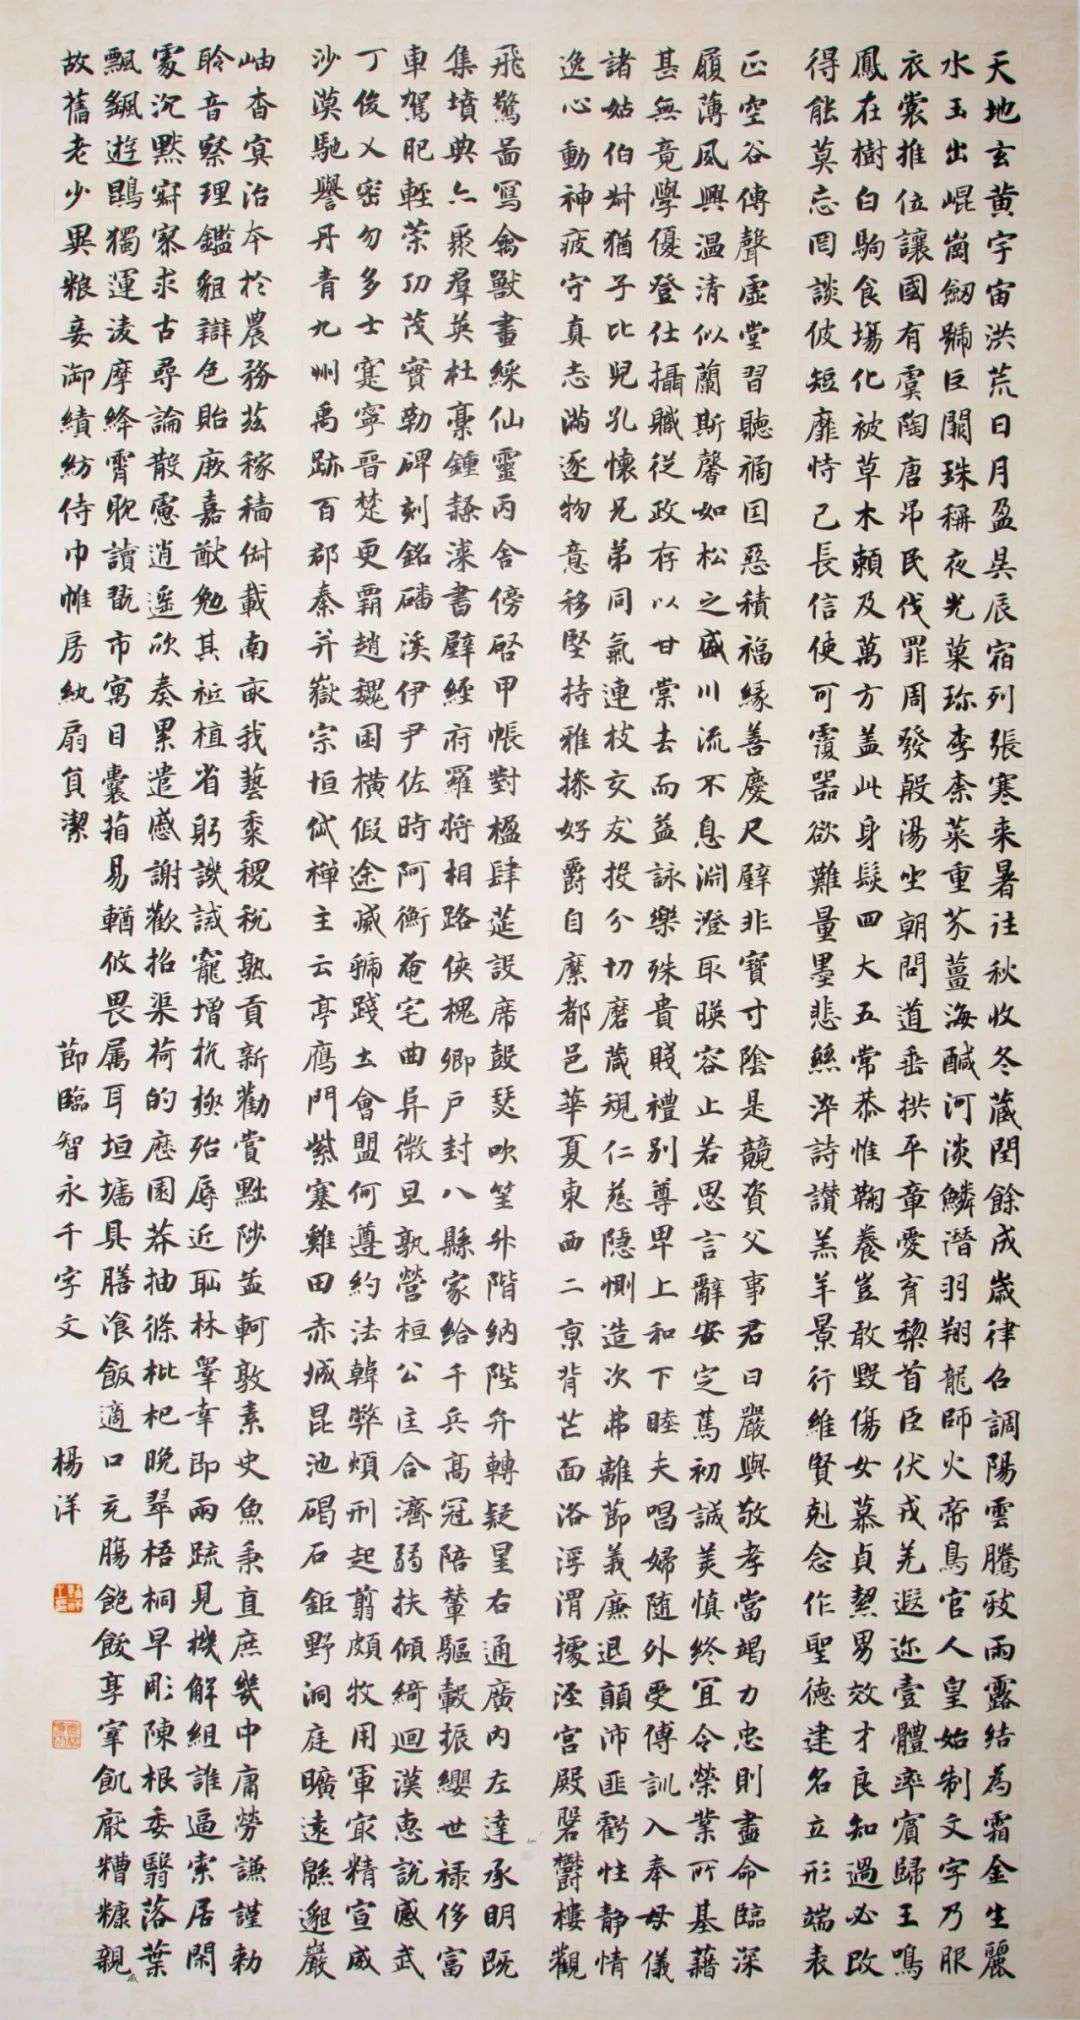 天地玄黃宇宙洪荒日月盈昃辰宿列張寒来暑往秋收冬藏閏餘成歲律呂調陽雲騰致雨露結為霜金生麗
水玉出崐崗劒號巨闕珠稱夜光菓珍李柰菜重芥薑海醎河淡鱗潛羽翔龍師火帝鳥官人皇始制文字乃服
衣裳推位讓國有虞陶唐弔民伐罪周發殷湯坐朝問道垂拱平章愛育黎首臣伏戎羌遐迩壹體率賓歸王鳴
鳳在樹白駒食場化被草木賴及萬方盖此身髮四大五常恭惟鞠養豈敢毀傷女慕貞絜男效才良知過必改
得能莫忘罔談彼短靡恃己長信使可覆器欲難量墨悲絲染詩讃羔羊景行維賢剋念作聖德建名立形端表
正空谷傳聲虛堂習聽禍因惡積福緣善慶尺璧非寶寸陰是競資父事君曰嚴與敬孝當竭力忠則盡命臨深
履薄夙興温清似蘭斯馨如松之盛川流不息淵澄取暎容止若思言辭安定篤初誠美慎終宜令榮業所基藉
甚無竟學優登仕攝職從政存以甘棠去而益詠樂殊貴賤禮別尊卑上和下睦夫唱婦随外受傅訓入奉母儀
諸姑伯叔猶子比兒孔懷兄弟同氣連枝交友投分切磨箴規仁慈隱惻造次弗離節義廉退顛沛匪虧性静情
逸心動神疲守真志滿逐物意移堅持雅操好爵自縻都邑華夏東西二京背芒面洛浮渭據涇宮殿磐欝樓觀
飛驚啚寫禽獸畫綵仙靈丙舍傍啓甲帳對楹肆莚設席鼓瑟吹笙升階納陛弁轉疑星右通廣內左達承明既
集墳典亦聚羣英杜稾鍾隸漆書壁經府羅將相路俠槐卿戶封八縣家給千兵高冠陪輦驅轂振纓世禄侈富
車駕肥輕策功茂實勒碑刻銘磻溪伊尹佐時阿衡奄宅曲阜微旦孰營桓公匡合濟弱扶傾綺迴漢惠說感武
丁俊乂密勿多士寔寧晉楚更霸趙魏困橫假途滅虢踐土會盟何遵約法韓弊煩刑起翦頗牧用軍最精宣威
沙漠馳譽丹青九州禹跡百郡秦并嶽宗恒岱禪主云亭鴈門紫塞雞田赤城昆池碣石鉅野洞庭曠遠緜邈巖
岫杳冥治本於農務茲稼穡俶載南畝我藝黍稷稅熟貢新勸賞黜陟孟軻敦素史魚秉直庶幾中庸勞謙謹勅
聆音察理鑑貌辯色貽厥嘉猷勉其祗植省躬譏誡寵增抗極殆辱近恥林睾幸即兩疏見機解組誰逼索居閑
處沉默寂寥求古尋論散慮逍遥欣奏累遣慼謝歡招渠荷的歷園莽抽條枇杷晚翠梧桐早彫陳根委翳落葉
飄颻遊鵾獨運凌摩絳霄耽讀翫市寓目囊葙易輶攸畏属耳垣墻具膳湌飯適口充腸飽飫享宰飢厭糟糠親
故舊老少異粮妾御績紡侍巾帷房紈扇員潔
節臨智永千字文
楊洋